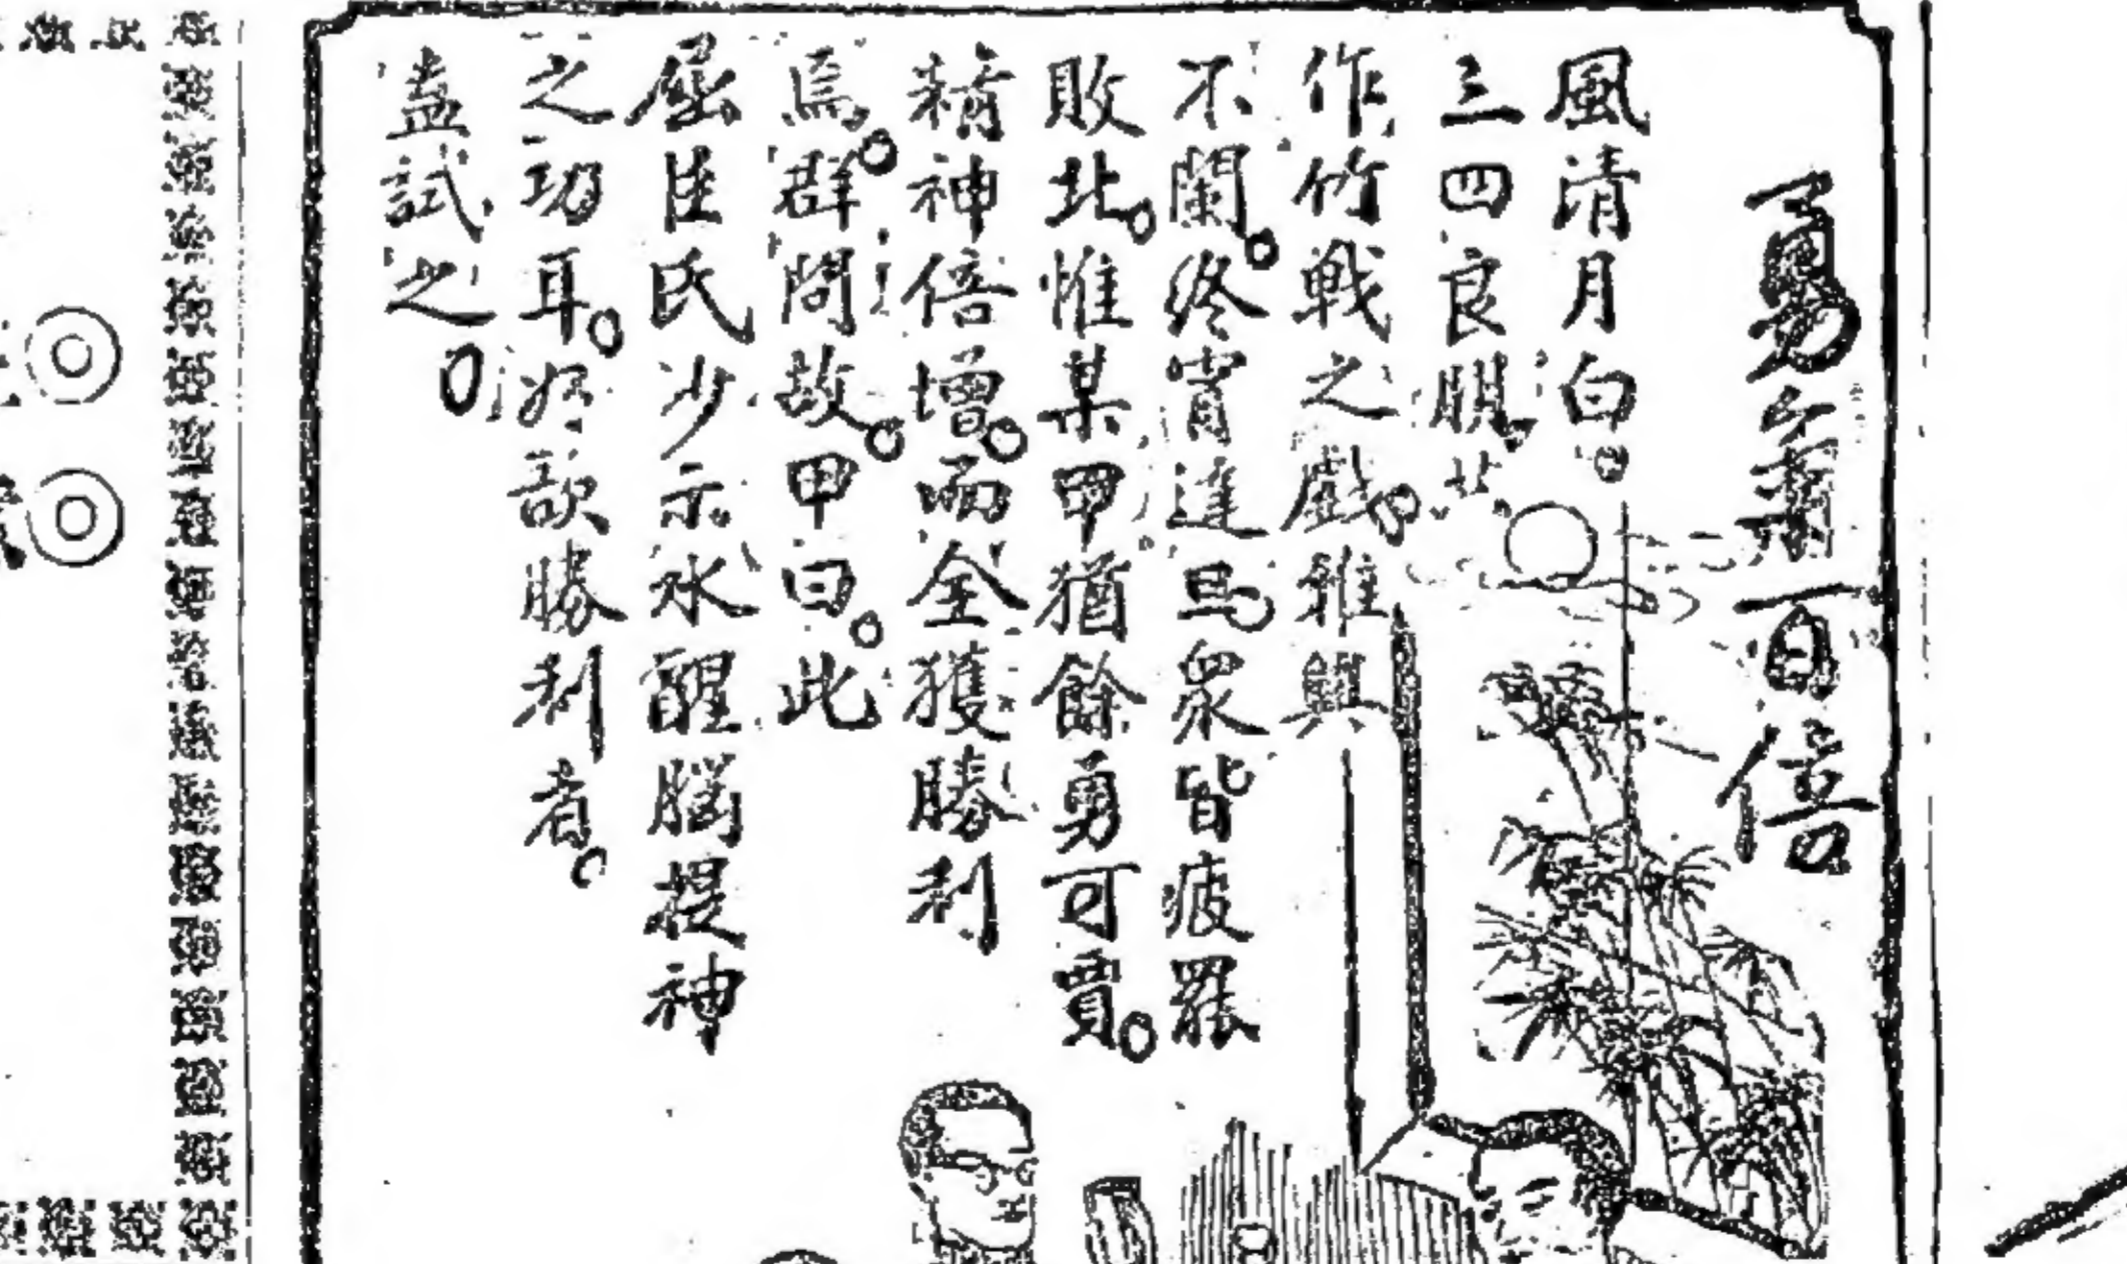 勇氣百倍
風清月白。
三四良朋共
作竹戰之戲。雅興
不闌。終宵達旦。衆皆疲罷
敗北。惟某甲猶餘勇可賈。
精神倍增。而全獲勝利
焉。群問故。甲曰。此
屈臣氏沙示水醒腦提神
之功耳。欲勝利者。
盍試之。